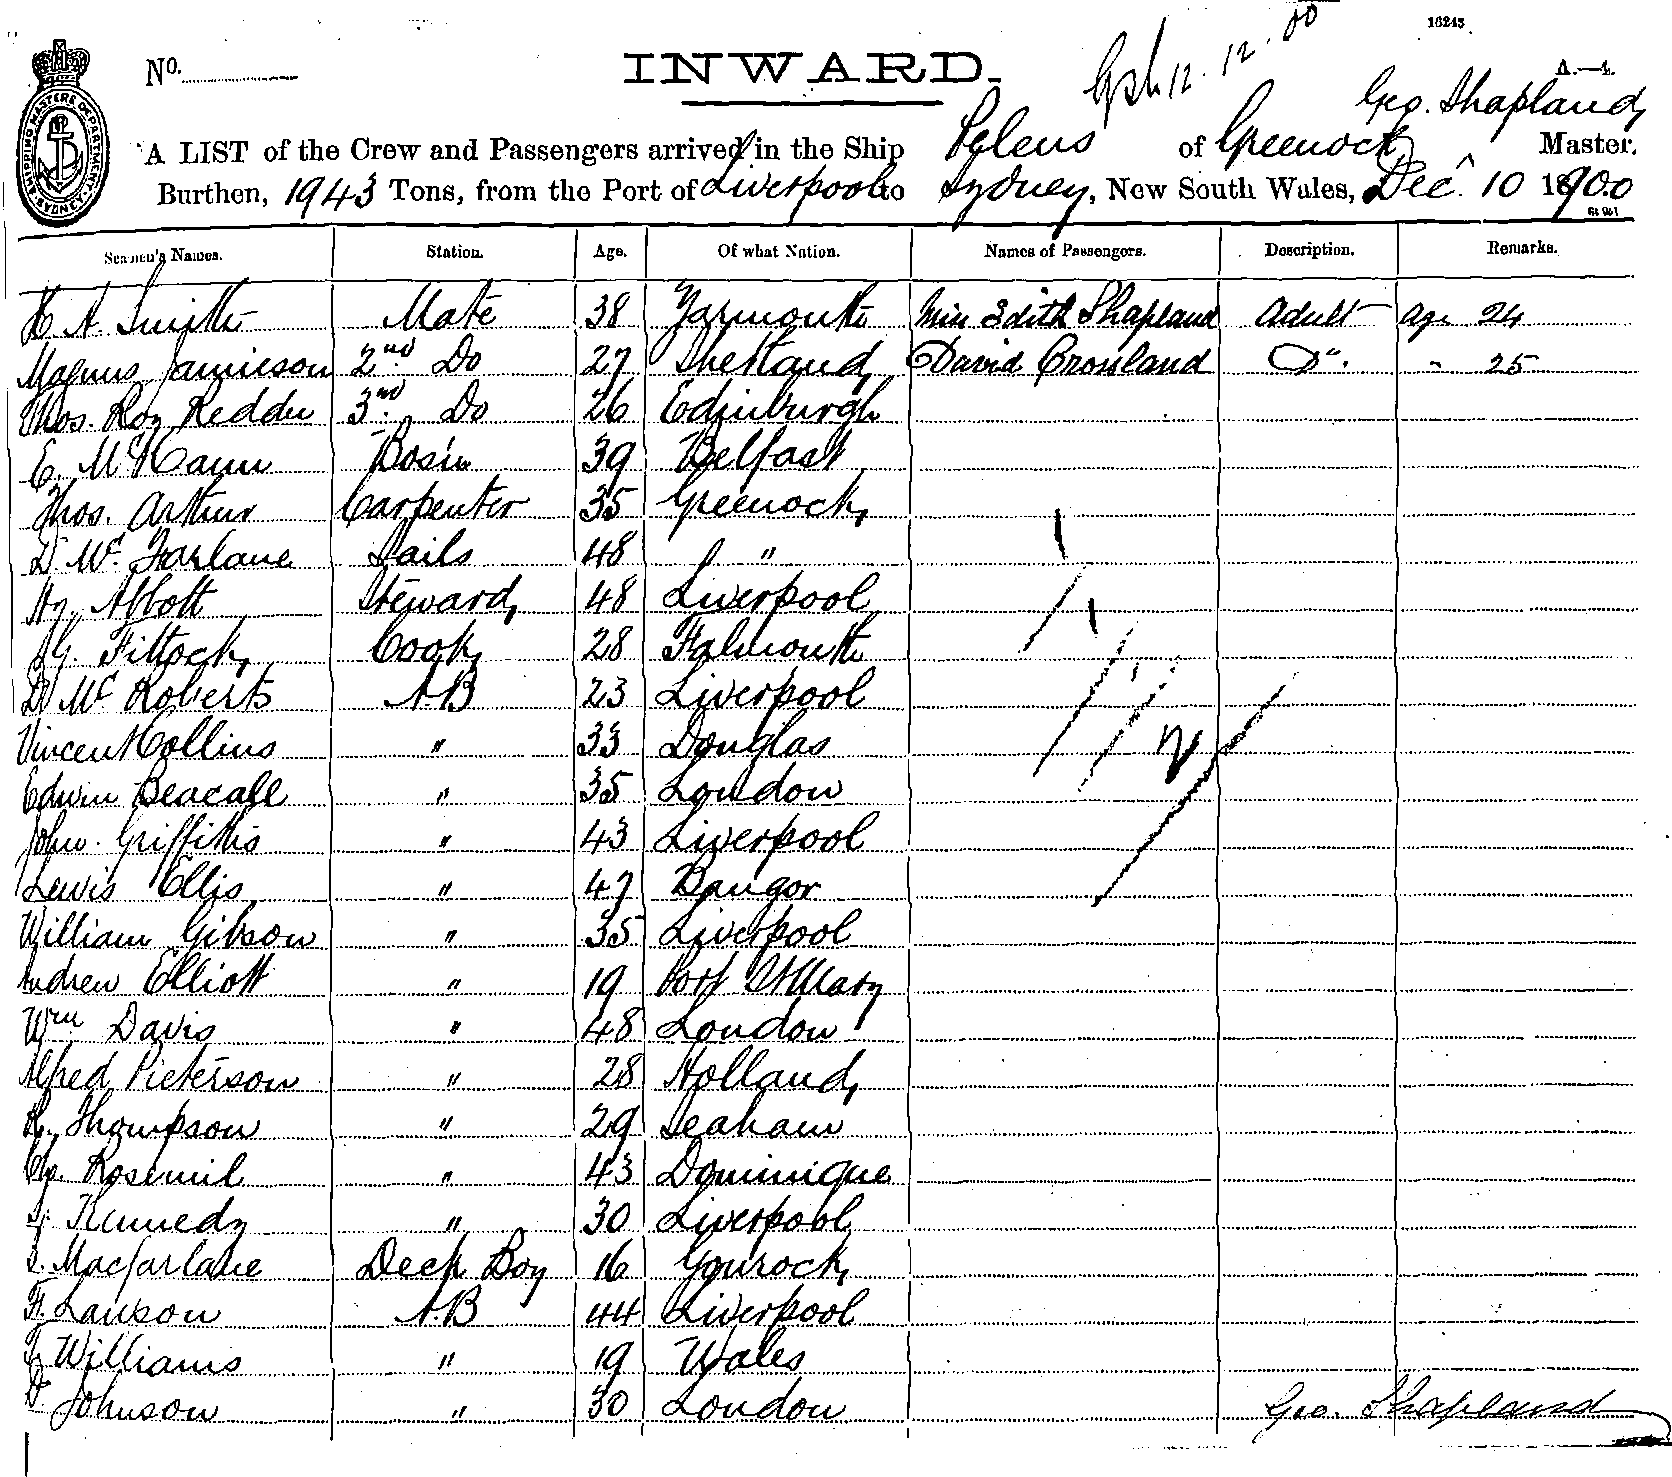 16243
No.
INWARD.
12.12.00
A.—4.
SHIPPING MASTERS DEPARTMENT SYDNEY
Geo. Shapland,
A LIST of the Crew and Passengers arrived in the Ship Peleus of Greenock Master.
Burthen, 1943 Tons, from the Port of Liverpool to Sydney, New South Wales, Decr. 10 1900
Seamen's Names. Station. Age. Of what Nation. Names of Passengers. Description. Remarks.
H A Smith Mate 38 Yarmouth Miss Edith Shapland Adult age 24
Magnus Jamieson 2nd Do 27 Shetland David Crossland Do. " 25
Thos. Roy 3rd Do 26 Edinburgh
E. McCann Bosn 39 Belfast
Thos. Arthur Carpenter 35 Greenock
D. McFarlane Sails 48 "
Hy. Abbott Steward 48 Liverpool
Fittock Cook 28 Falmouth
D Mc Roberts A.B 23 Liverpool
Vincent Collins " 33 Douglas
Edwin Beacall " 35 London
John Griffiths " 43 Liverpool
Lewis Ellis " 47 Bangor
William Gibson " 35 Liverpool
Andrew Elliott " 19 Port St Mary
Wm Davis " 48 London
Alfred Pieterson " 28 Holland
Thompson " 29 Seaham
Rosemil " 43 Dominique
Kennedy " 30 Liverpool
Macfarlane Deck Boy 16 Gourock
Lawson A.B 44 Liverpool
Williams " 19 Wales
Johnson " 30 London
Geo. Shapland